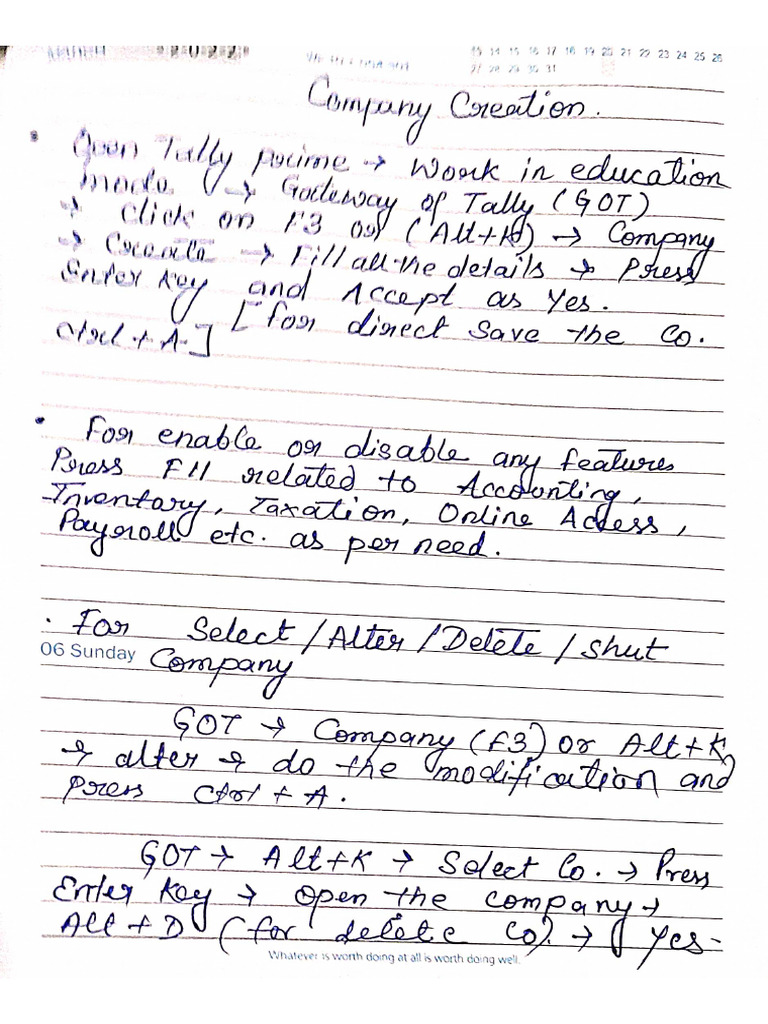 MARCH 2022
13 14 15 16 17 18 19 20 21 22 23 24 25 26
27 28 29 30 31
Company Creation.
• Open Tally prime → Work in education
mode → Gateway of Tally (GOT)
→ Click on F3 or (Alt+K) → Company
→ Create → Fill all the details → Press
Enter Key and Accept as Yes.
[for direct save the Co.
Ctrl + A-]
• For enable or disable any features
Press F11 related to Accounting,
Inventary, Taxation, Online Access,
Payroll etc. as per need.
. For Select / Alter / Delete / Shut
06 Sunday
Company
GOT → Company (F3) or Alt+K
→ alter → do the modification and
press Ctrl + A.
GOT → Alt+K → Select Co. → Press
Enter Key → Open the company →
Alt + D (for delete Co). → Yes-
Whatever is worth doing at all is worth doing well.